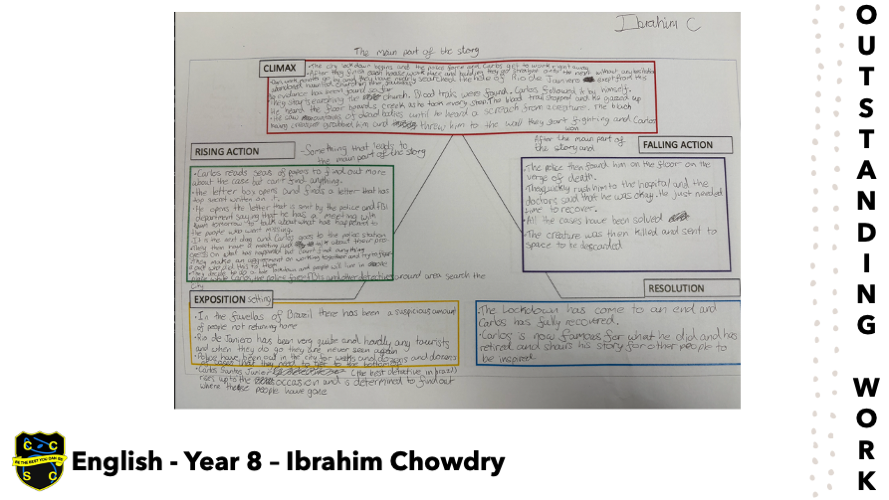 Ibrahim C
The main part of the story
CLIMAX
The city lockdown begins and the police force and Carlos get to work
evidence has been found so far
They start searching the church. Blood trails were found. Carlos followed it by himself.
He heard the floor boards creek as he took every step. The blood trail stopped and He gazed up
He saw of dead bodies until he heard a screech from a creature. The black
creature grabbed him and throw him to the wall they start fighting and Carlos
won
RISING ACTION
- Something that leads to
the main part of the story
Carlos reads seas of papers to find out more
about the case but can't find anything.
the letter box opens and finds a letter that has
top secret written on it.
He opens the letter that is sent by the police and FBI
department saying that he has a meeting with
them tomorrow to talk about what has happened to
the people who went missing.
It is the next day and Carlos goes to the police station
around area search the
city
After the main part of
the story and
FALLING ACTION
The police then found him on the floor on the
verge of death.
They quickly rush him to the hospital and the
doctors said that he was okay. He just needed
time to recover.
All the cases have been solved
The creature was then killed and sent to
space to be discarded
EXPOSITION setting
In the favellas of Brazil there has been a suspicious amount
of people not returning home
Rio de Janeiro has been very quite and hardly any tourists
and when they do go they are never seen again
Police have been out in the city for weeks and dozens and dozens
of cases
Carlos Santos Junior (the best detective in brazil)
rises up to the occasion and is determined to find out
where these people have gone
RESOLUTION
The Lockdown has come to an end and
Carlos has fully recovered.
Carlos is now famous for what he did and has
retired and shares his story for other people to
be inspired.
OUTSTANDING WORK
C C
BE THE BEST YOU CAN BE
S C
English - Year 8 – Ibrahim Chowdry